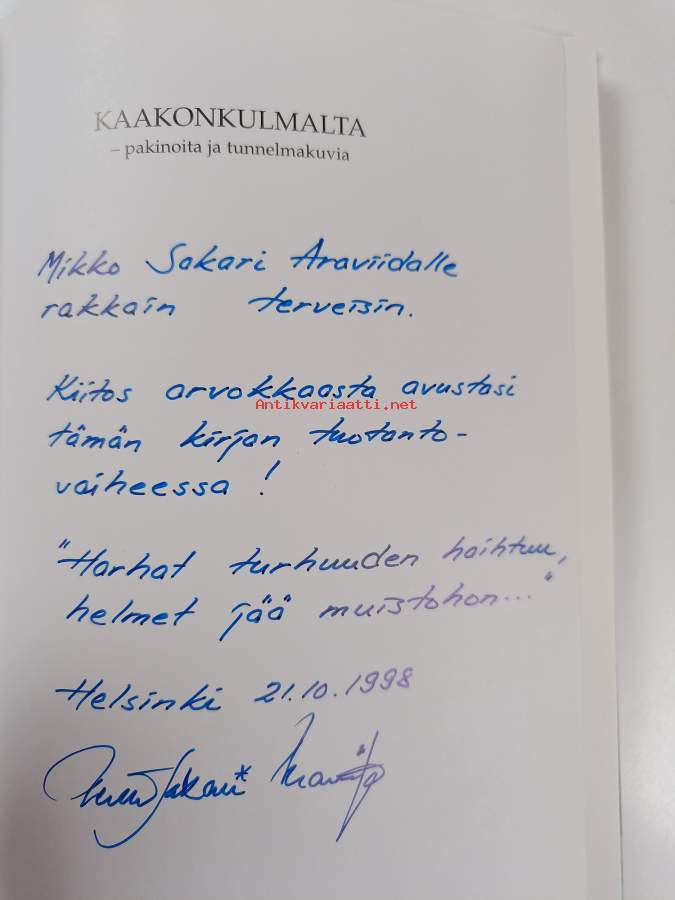 KAAKONKULMALTA
– pakinoita ja tunnelmakuvia
Mikko Sakari Araviidalle
rakkain terveisin.
Kiitos arvokkaasta avustasi
Antikvariaatti.net
tämän kirjan tuotanto-
vaiheessa!
"Harhat turhuuden haihtuu,
helmet jää muistohon..."
Helsinki 21.10.1998